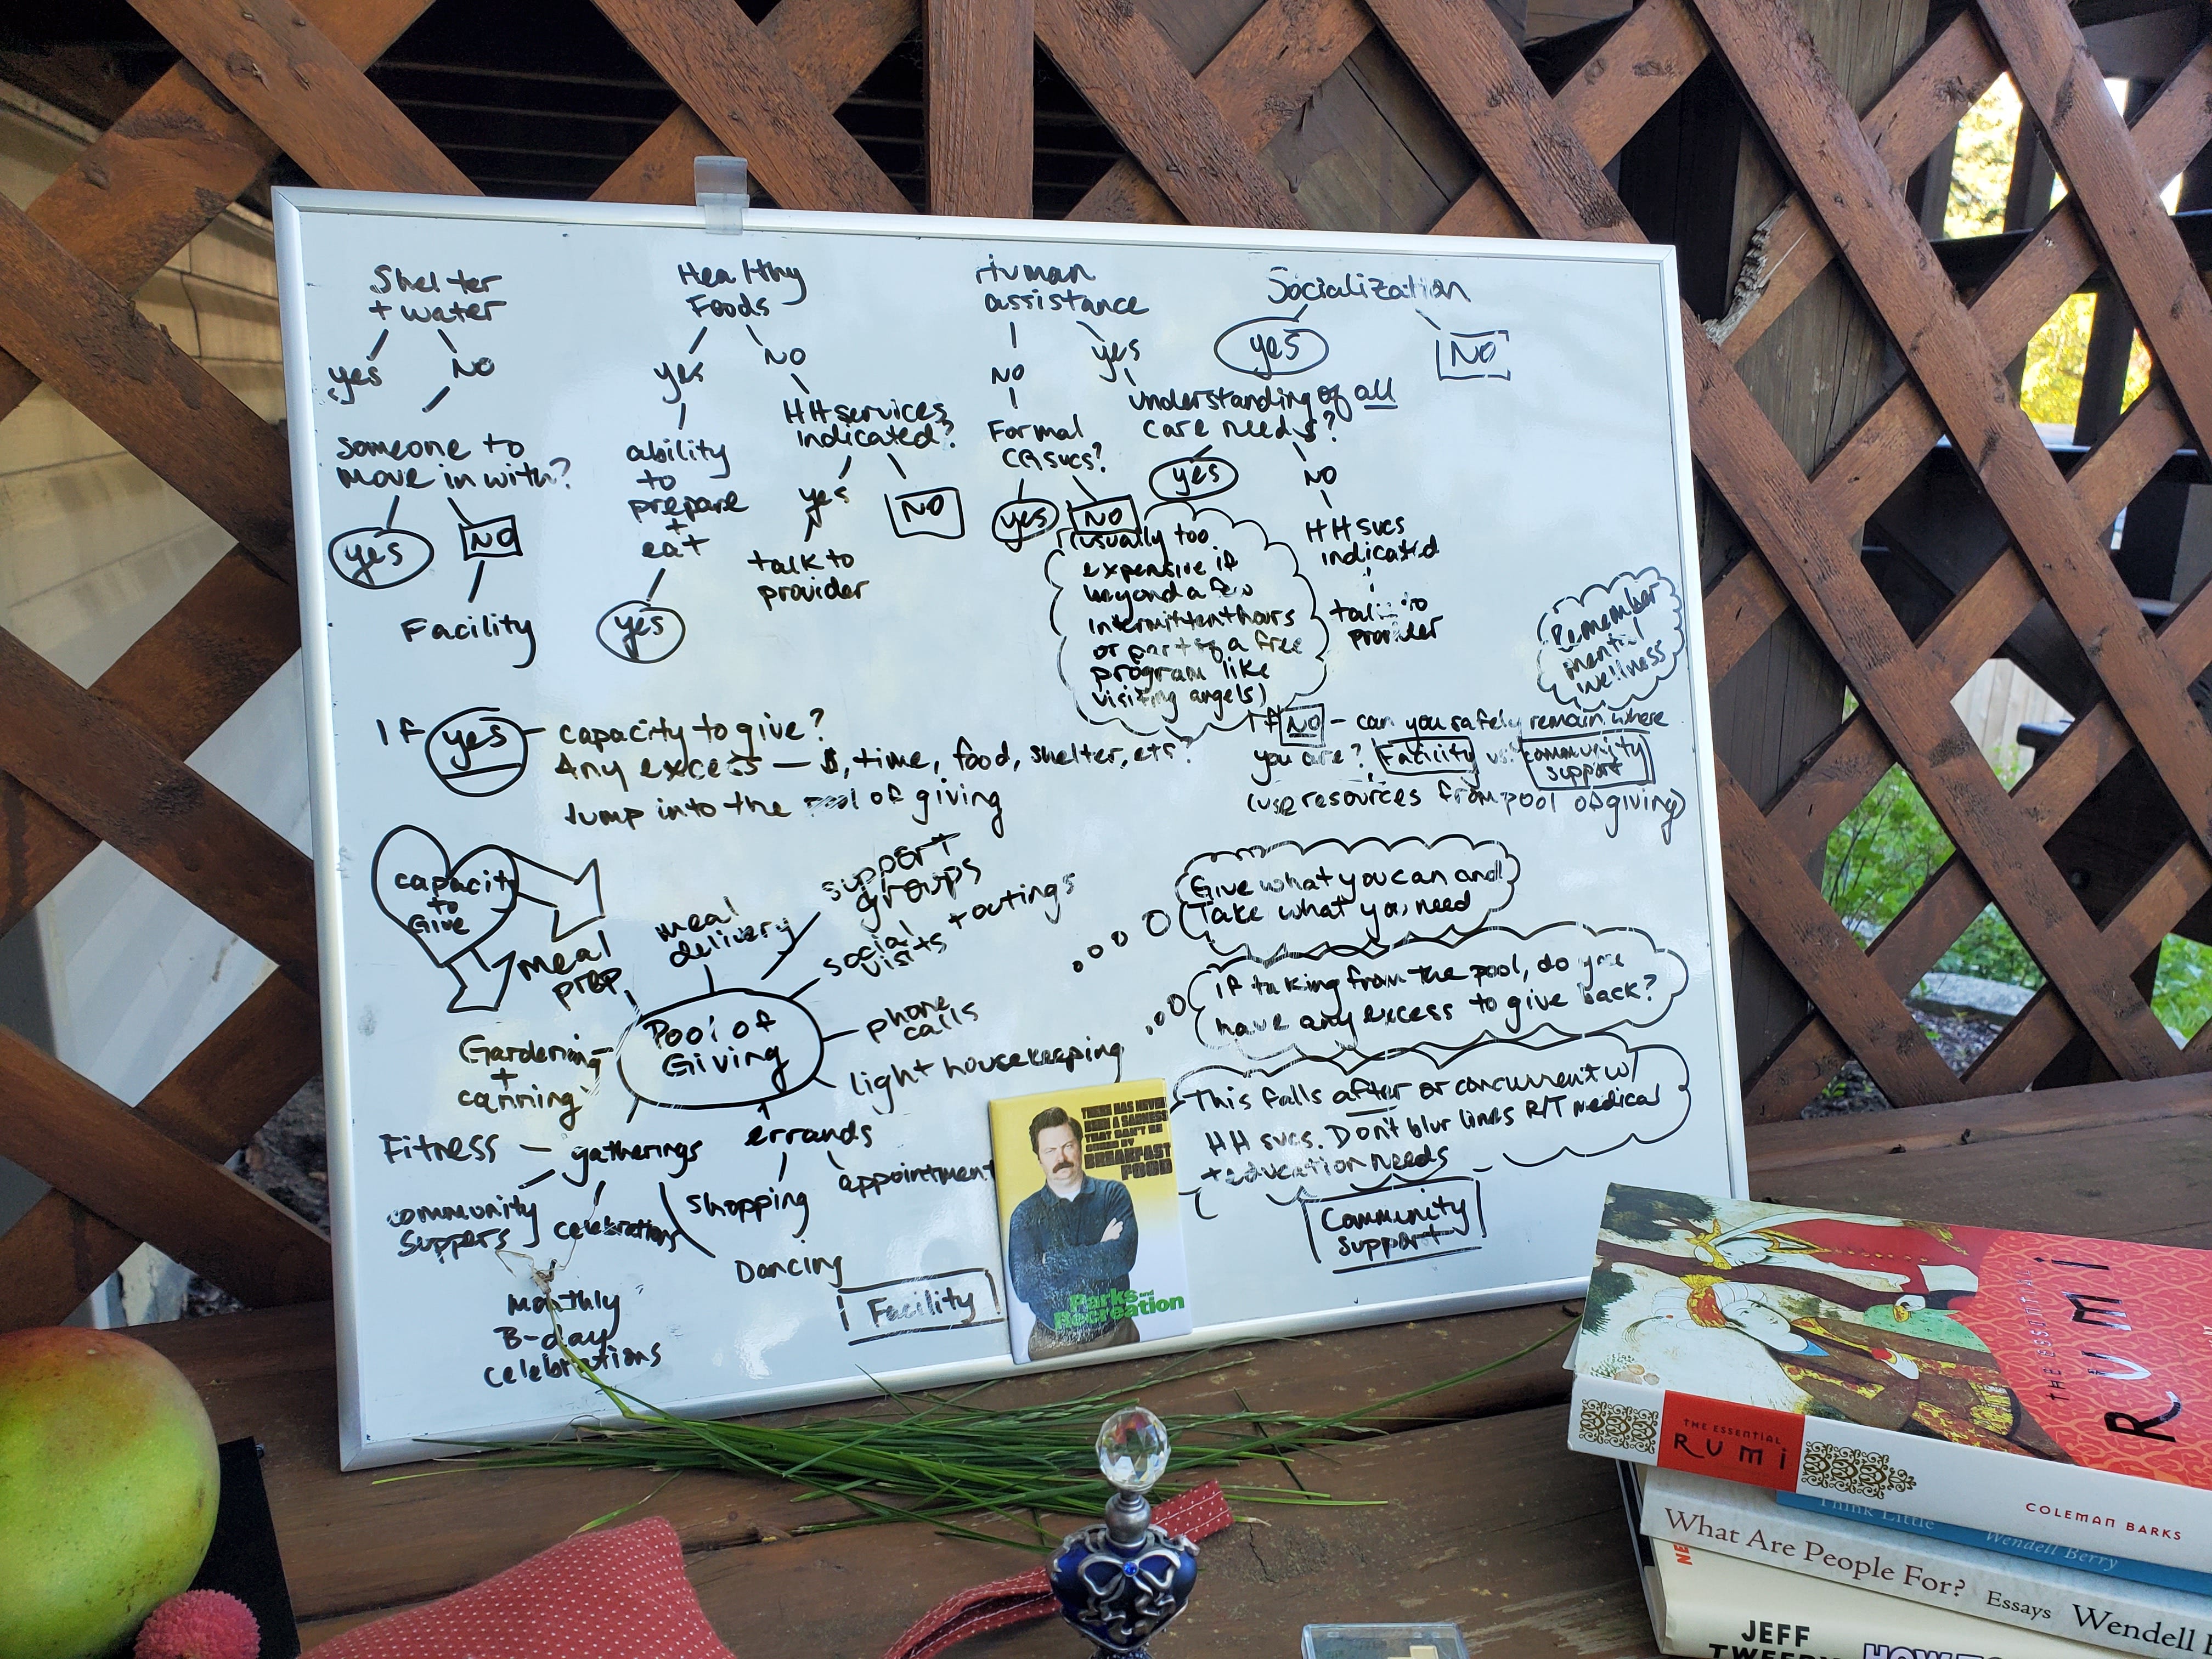 Shelter
+ water
yes
NO
someone to
move in with?
yes
NO
Facility
Healthy
Foods
yes
NO
ability
to
prepare
+
eat
yes
HH services
indicated?
yes
NO
talk to
provider
Human
assistance
NO
yes
Formal
CG svcs?
yes
NO
(usually too
expensive if
beyond a few
intermittent hours
or part of a free
program like
visiting angels)
understanding of all
care needs?
yes
NO
HH svcs
indicated
talk to
provider
Socialization
yes
NO
Remember
mental
wellness
If yes - capacity to give?
Any excess - $, time, food, shelter, etc?
Jump into the pool of giving
If NO - can you safely remain where
you are? Facility vs. community
support
(use resources from pool of giving)
capacity
to
Give
meal
prep
meal
delivery
support
groups
social
visits + outings
phone
calls
light housekeeping
Pool of
Giving
Gardening
+
canning
Fitness - gatherings
errands
community
suppers
celebrations
shopping
appointment
Dancing
Monthly
B-day
celebrations
Facility
Give what you can and
Take what you need
If taking from the pool, do you
have any excess to give back?
This falls after or concurrent w/
HH svcs. Don't blur lines R/T medical
+ education needs
Community
support
THERE HAS NEVER
BEEN A SADNESS
THAT CAN'T BE
CURED BY
BREAKFAST
FOOD
Parks and
Recreation
THE ESSENTIAL
RUMI
THE ESSENTIAL
RUMI
COLEMAN BARKS
Think Little
Wendell Berry
What Are People For? Essays Wendell
JEFF
TWEEDY
HOW TO